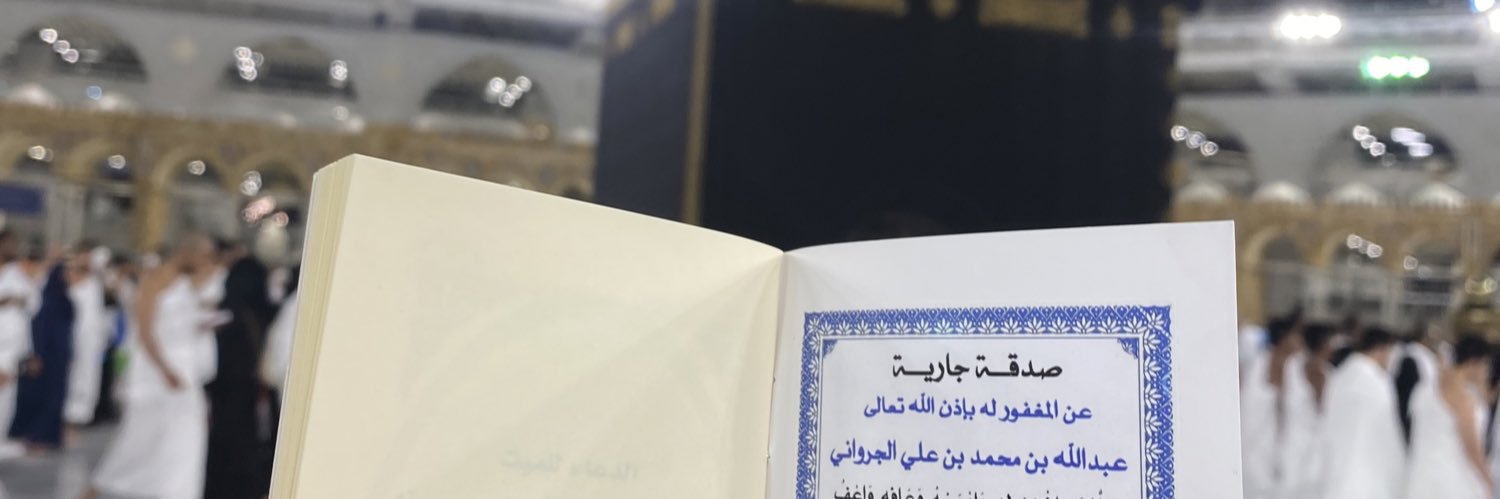 صدقة جارية
عن المغفور له بإذن الله تعالى
عبدالله بن محمد بن علي الجرواني
الدعاء للميت